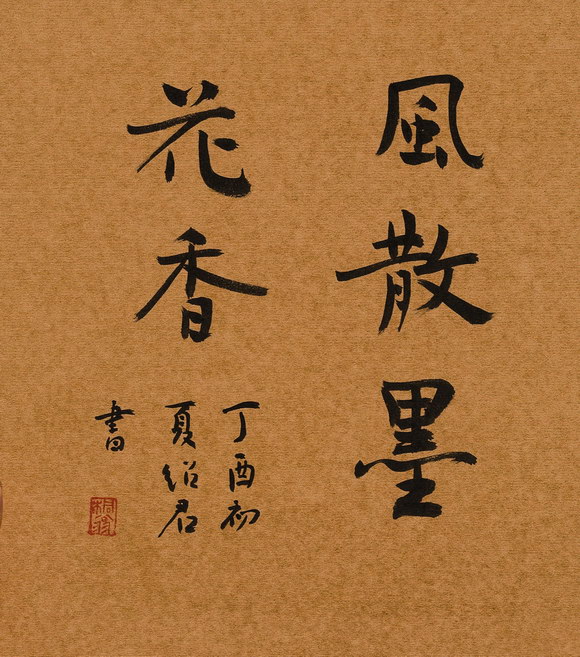 風散墨
花香
丁酉初
夏紹君
書